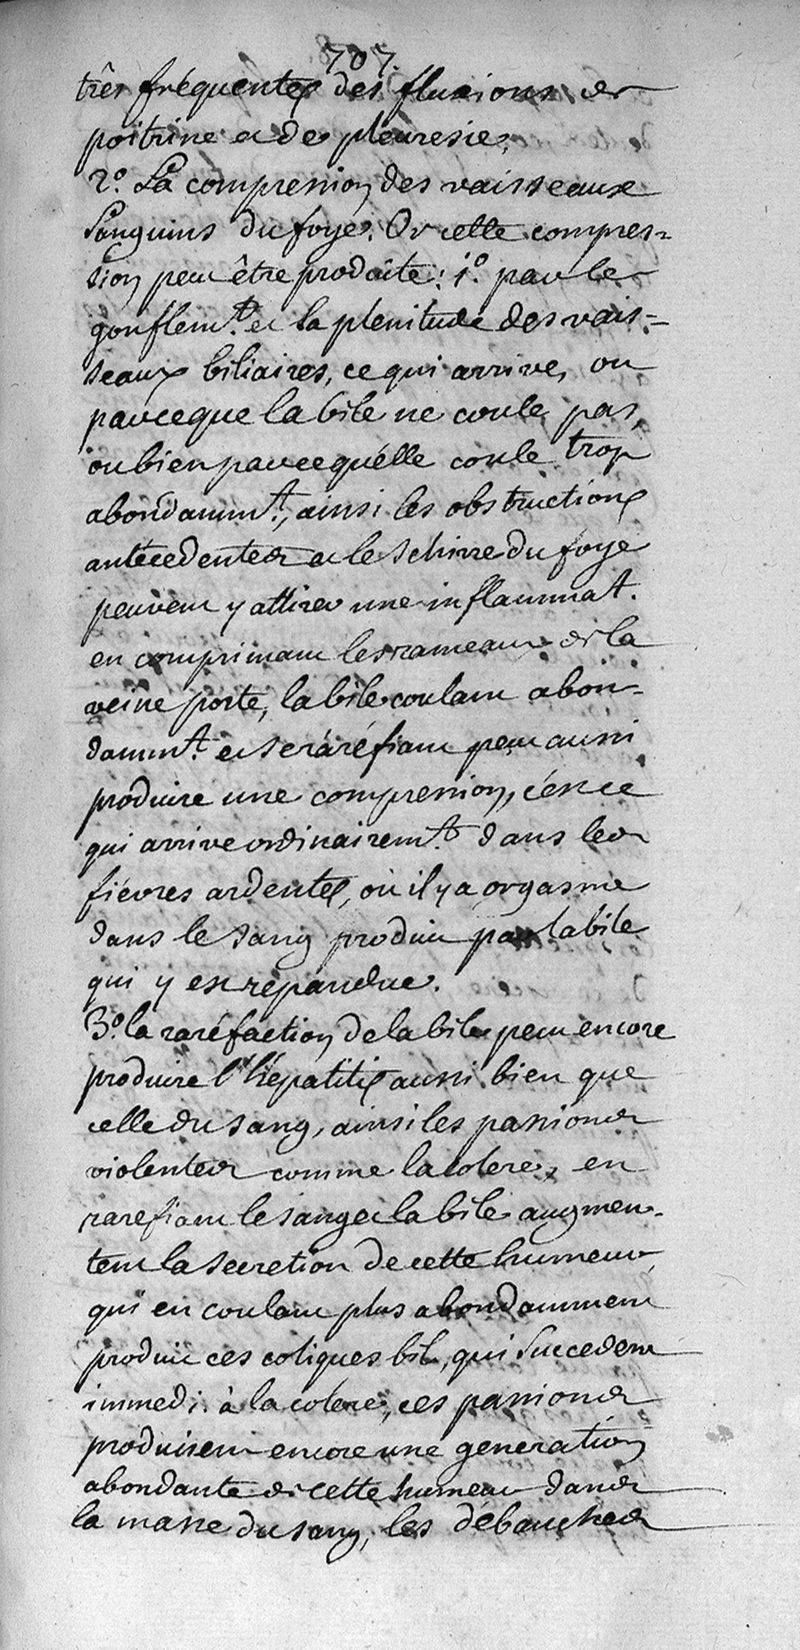 707.
très fréquentes des fluxions de
poitrine et de pleuresie,
2.° La compression des vaisseaux
Sanguins du foye. Or cette compres=
sion peut être produite: 1.° par le
gonflem.t et la plenitude des vais=
seaux biliaires, ce qui arrive, ou
parceque la bile ne coule pas,
ou bien parcequ'elle coule trop
abondamm.t, ainsi les obstructions
antécedentes et le schirre du foye
peuvent y attirer une inflammat.
en comprimant les rameaux de la
veine porte, la bile coulant abon=
damm.t et se raréfiant peut aussi
produire une compression, c'est ce
qui arrive ordinairem.t dans les
fiévres ardentes, où il y a orgasme
dans le sang produit par la bile
qui y est répandue.
3.° la raréfaction de la bile peut encore
produire l'hépatitis aussi bien que
celle du sang, ainsi les passions
violentes comme la colere, en
rarefiant le sang et la bile augmen=
tent la secretion de cette humeur,
qui en coulant plus abondamment
produit ces coliques bil., qui Succedent
immedi. à la colere, ces passions
produisent encore une generation
abondante de cette humeur dans
la masse du sang, les débauches